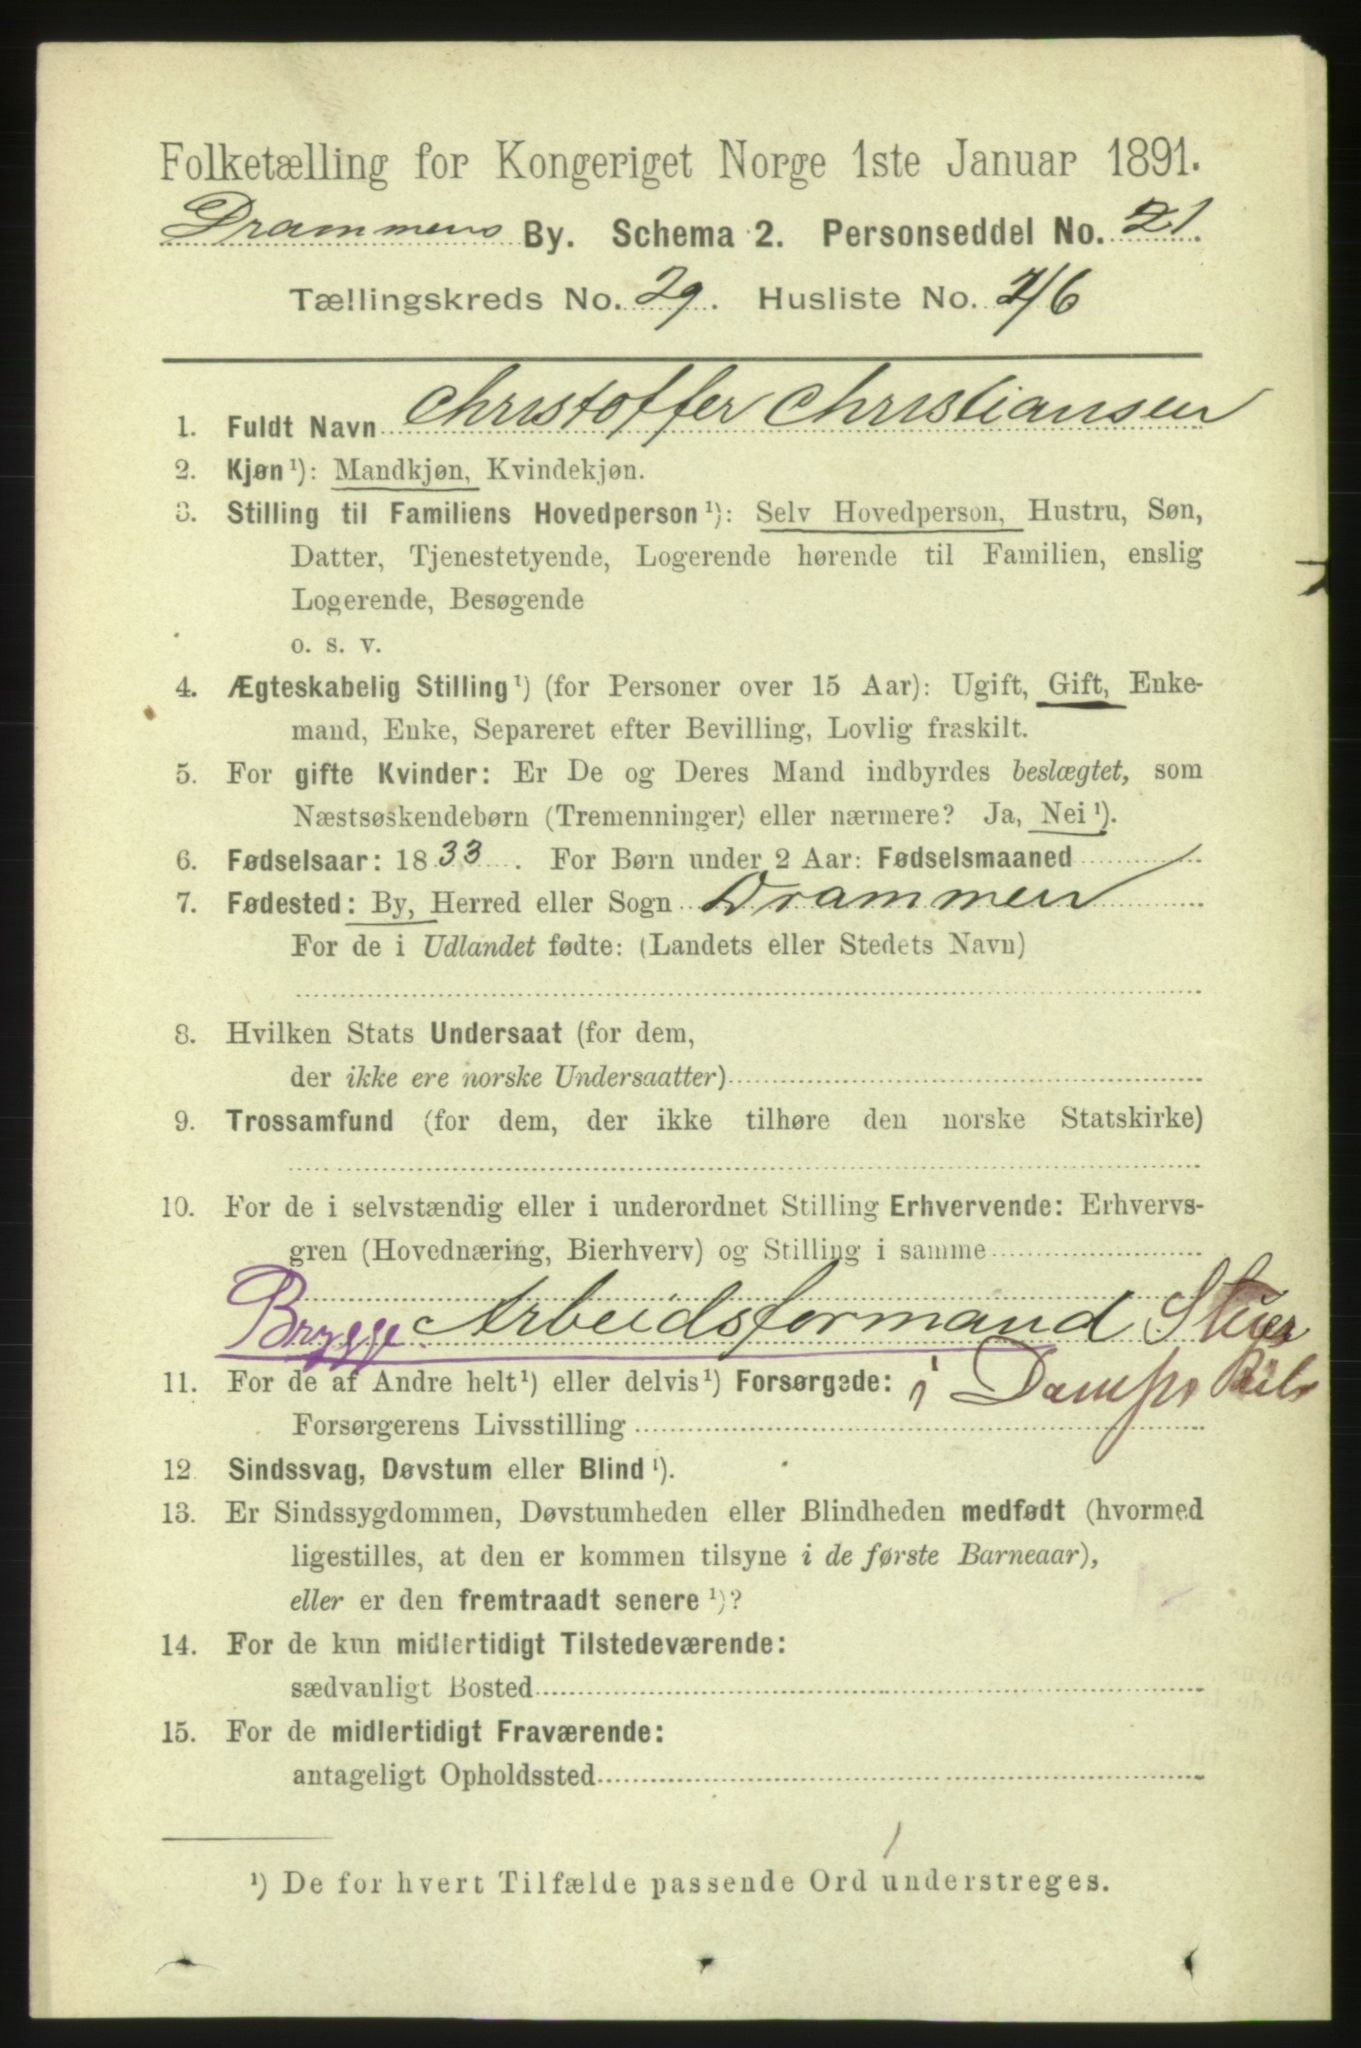 Folketælling for Kongeriget Norge 1ste Januar 1891.
Drammens By. Schema 2. Personseddel No. 21
Tællingskreds No. 29. Husliste No. 
1. Fuldt Navn Christoffer Christiansen
2. Kjøn ¹): Mandkjøn, Kvindekjøn.
3. Stilling til Familiens Hovedperson ¹): Selv Hovedperson, Hustru, Søn,
Datter, Tjenestetyende, Logerende hørende til Familien, enslig
Logerende, Besøgende
o. s. v.
4. Ægteskabelig Stilling ¹) (for Personer over 15 Aar): Ugift, Gift, Enke-
mand, Enke, Separeret efter Bevilling, Lovlig fraskilt.
5. For gifte Kvinder: Er De og Deres Mand indbyrdes beslægtet, som
Næstsøskendebørn (Tremenninger) eller nærmere? Ja, Nei ¹).
6. Fødselsaar: 1833. For Børn under 2 Aar: Fødselsmaaned
7. Fødested: By, Herred eller Sogn Drammen
For de i Udlandet fødte: (Landets eller Stedets Navn)
8. Hvilken Stats Undersaat (for dem,
der ikke ere norske Undersaatter)
9. Trossamfund (for dem, der ikke tilhøre den norske Statskirke)
10. For de i selvstændig eller i underordnet Stilling Erhvervende: Erhvervs-
gren (Hovednæring, Bierhverv) og Stilling i samme
Brygge. Arbeidsformand
11. For de af Andre helt ¹) eller delvis ¹) Forsørgede: i
Forsørgerens Livsstilling
12 Sindssvag, Døvstum eller Blind ¹).
13. Er Sindssygdommen, Døvstumheden eller Blindheden medfødt (hvormed
ligestilles, at den er kommen tilsyne i de første Barneaar),
eller er den fremtraadt senere ¹)?
14. For de kun midlertidigt Tilstedeværende:
sædvanligt Bosted
15. For de midlertidigt Fraværende:
antageligt Opholdssted
¹) De for hvert Tilfælde passende Ord understreges.